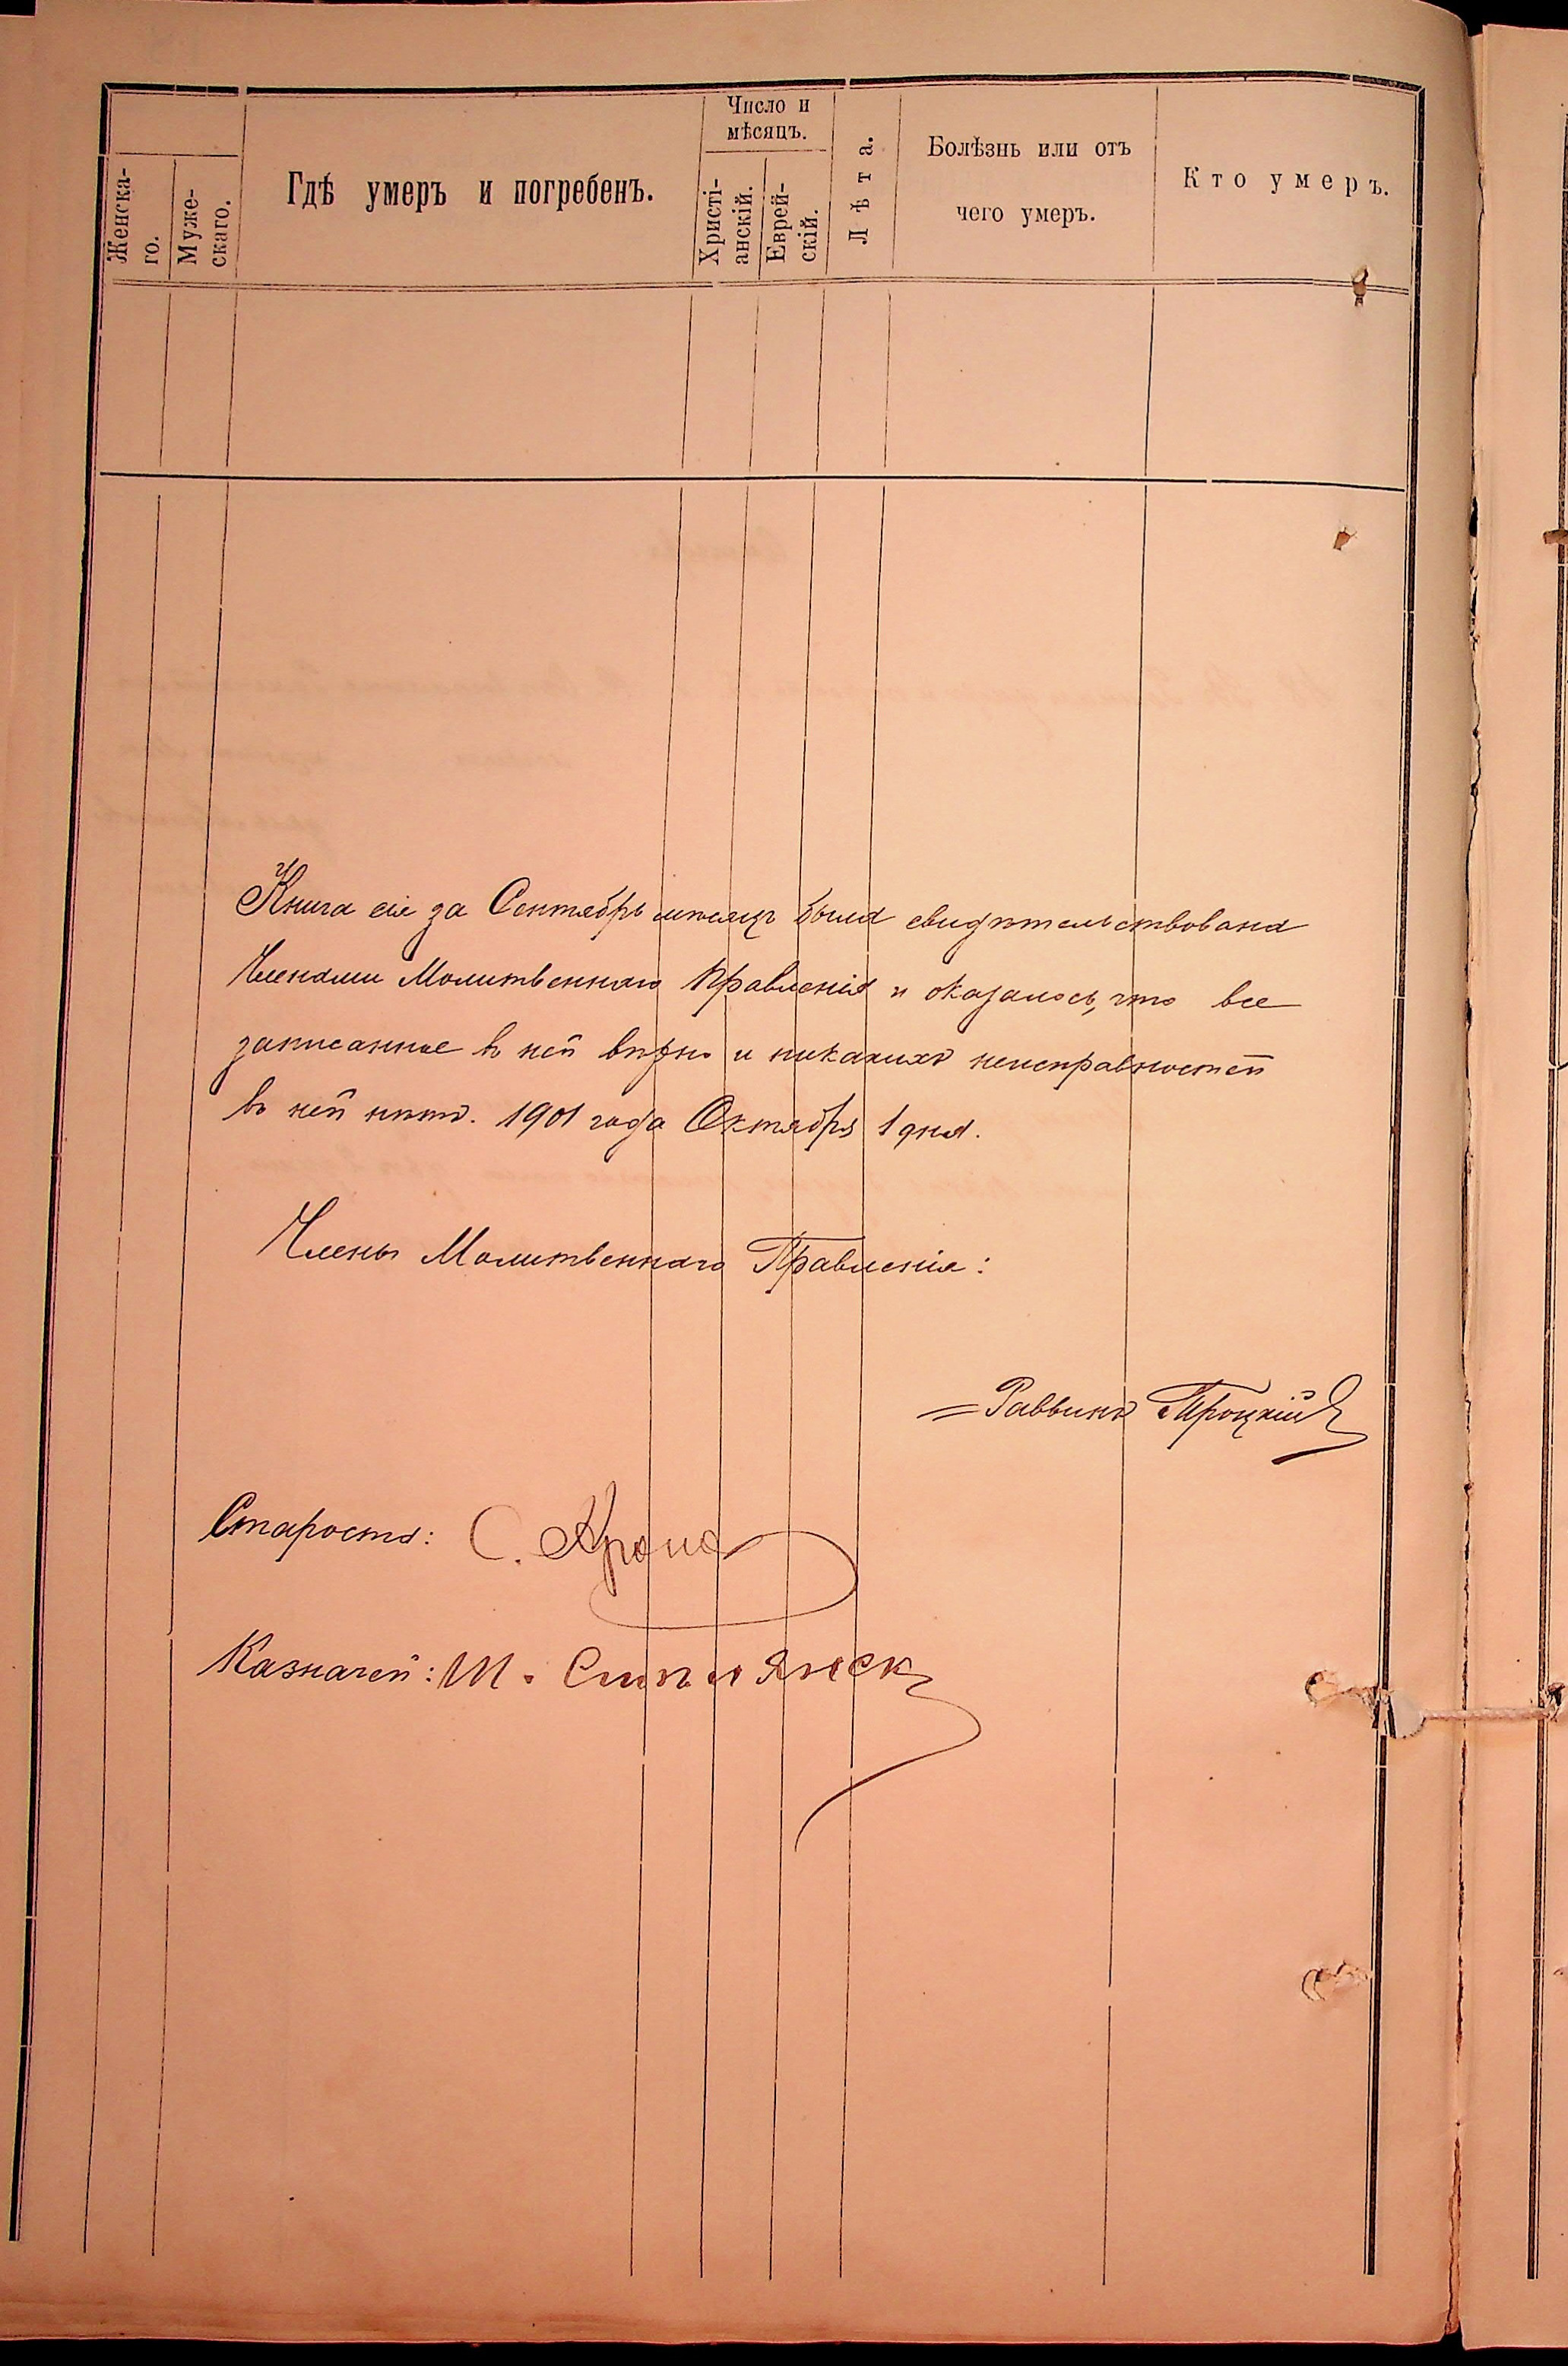 Женска-
го.
Муже-
скаго.
Гдѣ умеръ и погребенъ.
Число и
мѣсяцъ.
Христі-
анскій.
Еврей-
скій.
Лѣта.
Болѣзнь или отъ
чего умеръ.
Кто умеръ.
Книга сія за Сентябрь мѣсяцъ была свидѣтельствована
Членами Молитвеннаго Правленія и оказалось, что все
записанное въ ней вѣрно и никакихъ неисправностей
въ ней нѣтъ. 1901 года Октября 1 дня.
Члены Молитвеннаго Правленія:
Раввинъ Троцкій
Староста: С.
Казначей: Ш.